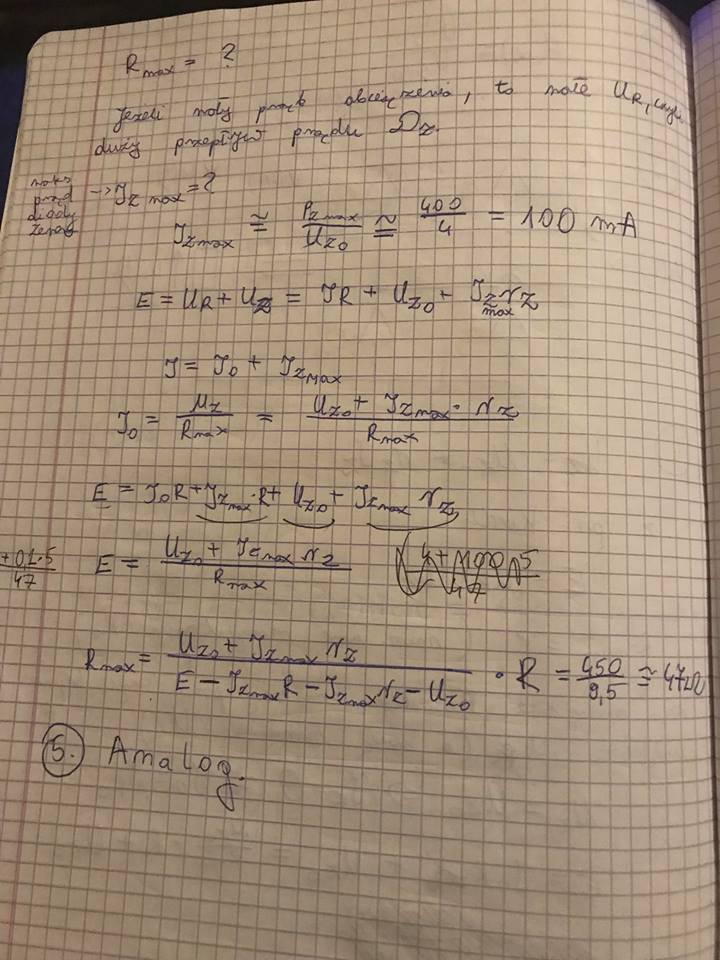 R_max = ?
Jeżeli mały prąd obciążenia, to małe U_R, czyli
duży przepływ prądu D_z.
maks prąd diody Zenera → I_z max = ?
I_zmax ≅ P_zmax / U_z0 ≅ 400 / 4 = 100 mA
E = U_R + U_z = IR + U_z0 + I_zmax r_z
I = I_0 + I_zmax
I_0 = U_z / R_max = (U_z0 + I_zmax · r_z) / R_max
E = I_0 R + I_zmax · R + U_z0 + I_zmax r_z
+ 0,1·5 / 47
E = (U_z0 + I_zmax r_z) / R_max
R_max = (U_z0 + I_zmax r_z) / (E − I_zmax R − I_zmax r_z − U_z0) · R = 450 / 9,5 ≅ 47 Ω
5. Analog.